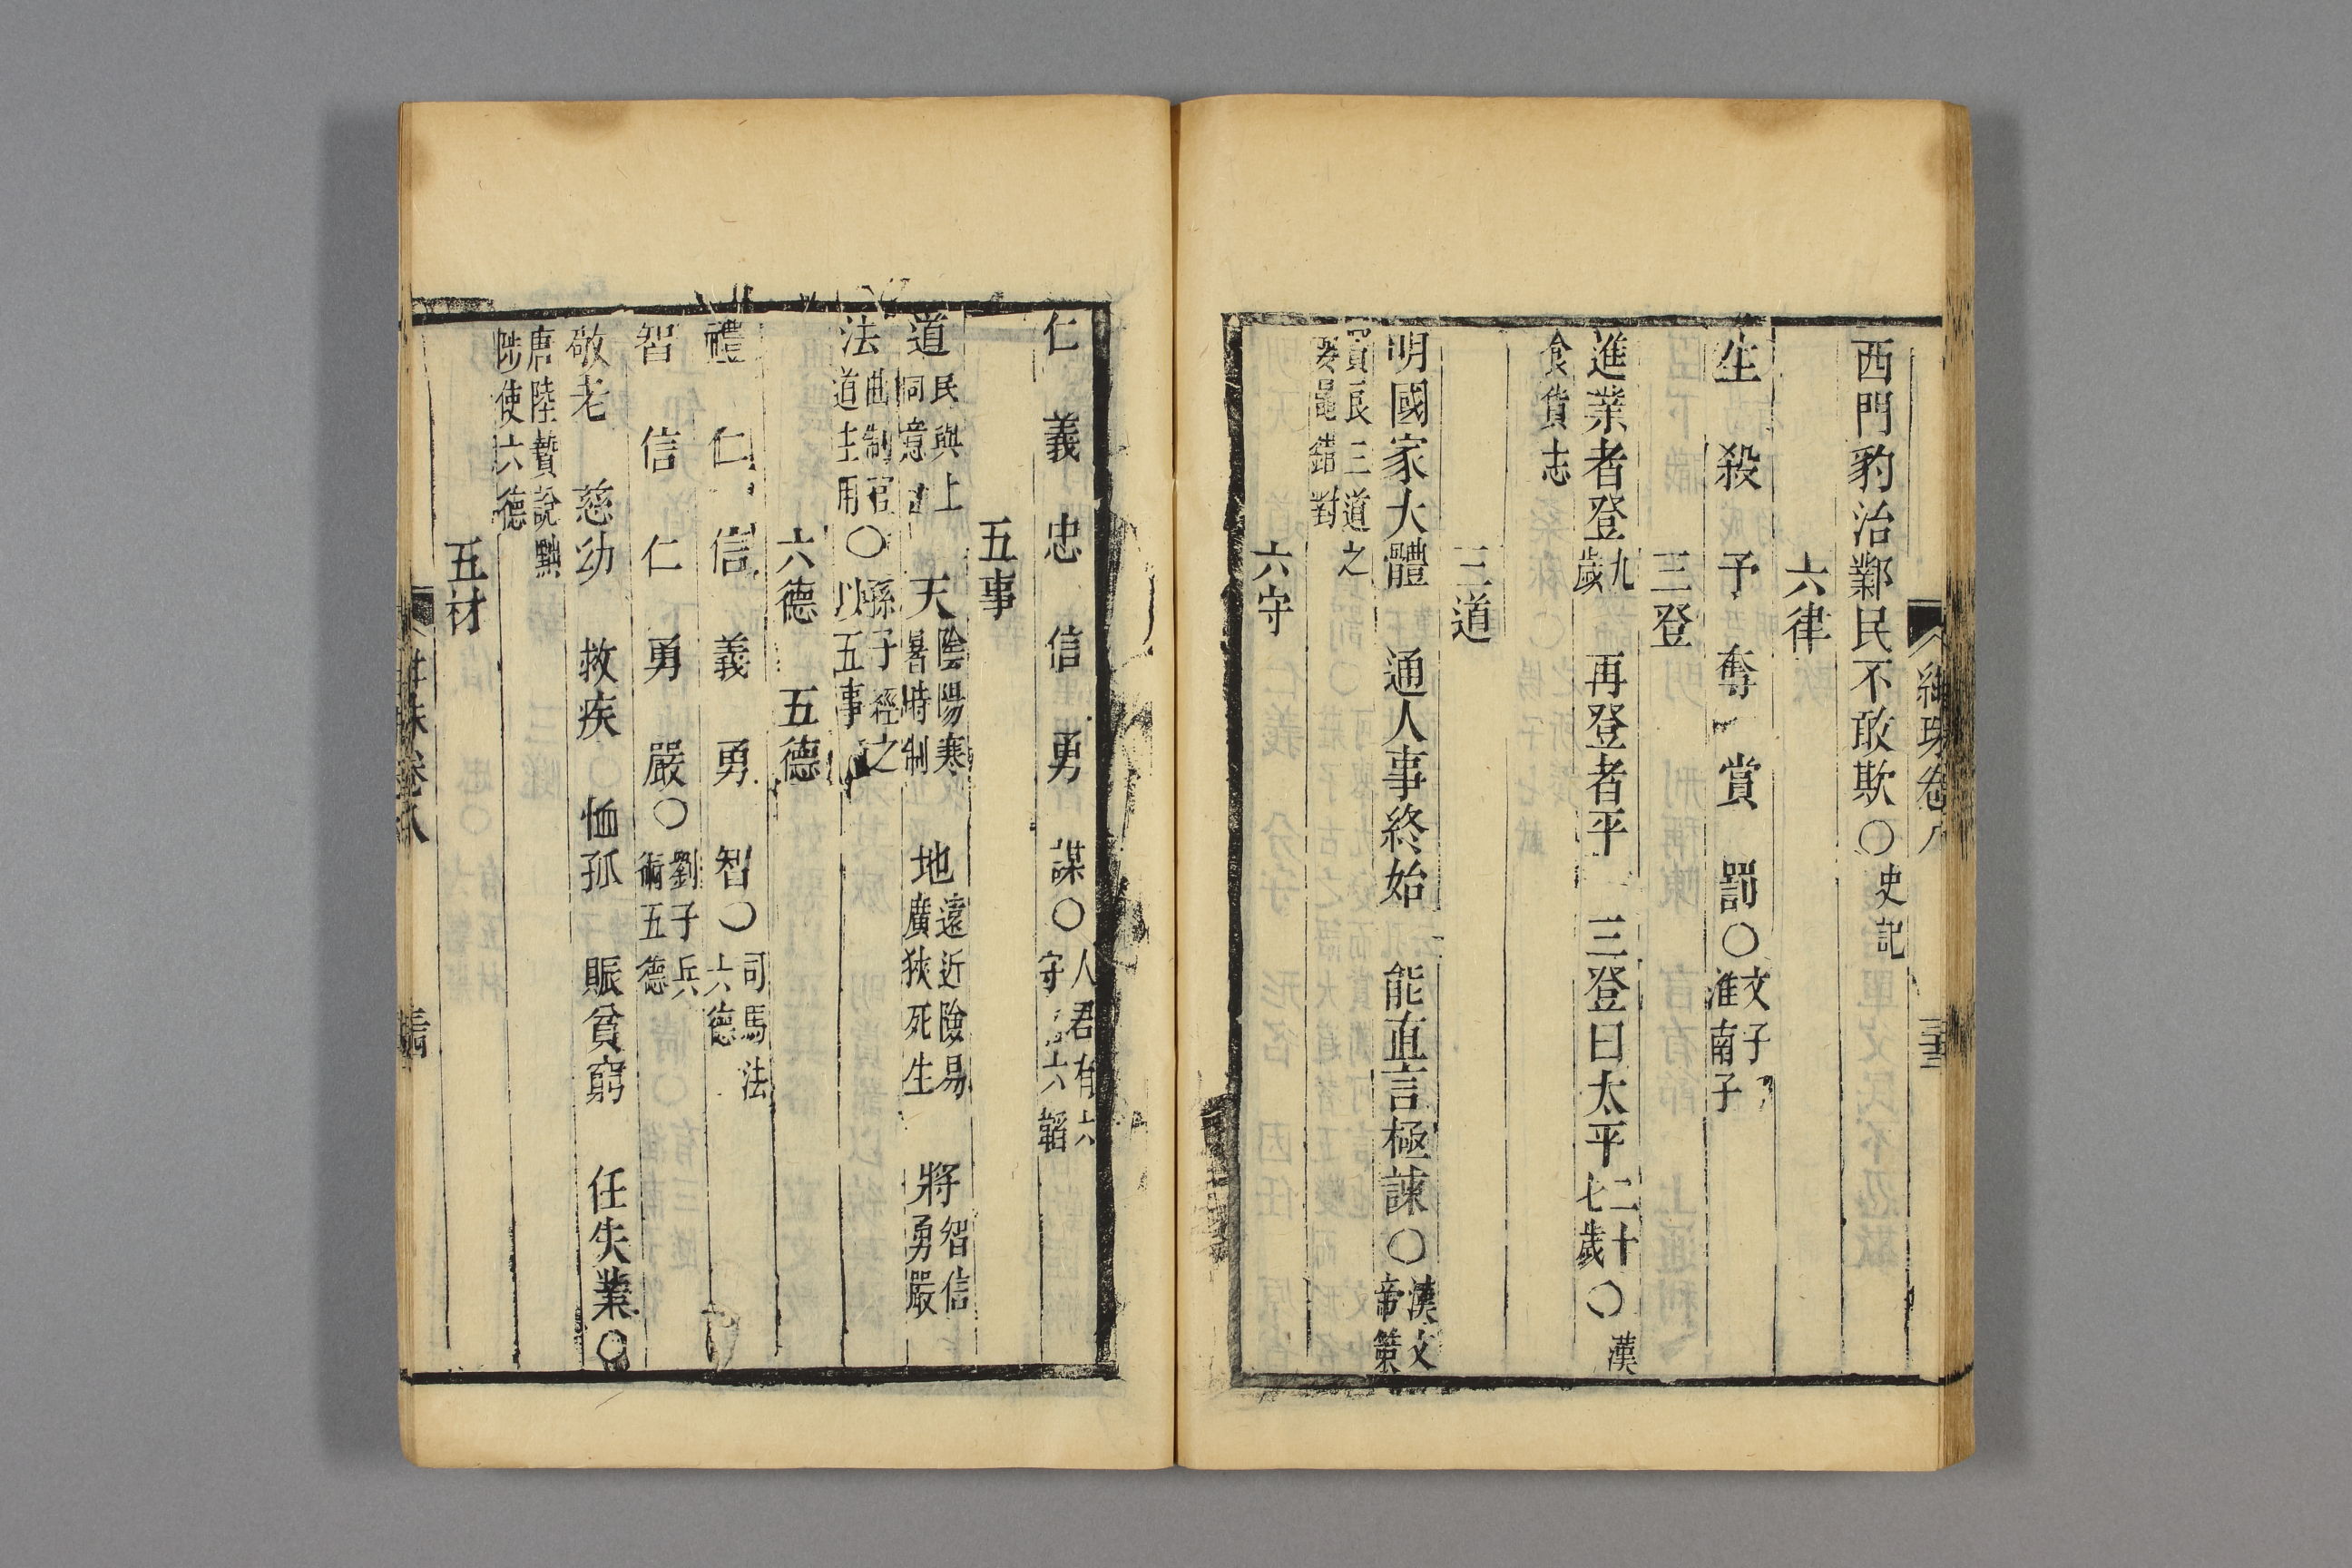 西門豹治鄴民不敢欺〇史記
六律
生 殺 予 奪 賞 罰〇文子淮南子
三登
進業者登九歲 再登者平 三登曰太平二十七歲〇漢
食貨志
三道
明國家大體 通人事終始 能直言極諫〇漢文帝策
賢良三道之要鼂錯對
六守
仁 義 忠 信 勇 謀〇人君有六守 六韜
五事
道民與上同意 天陰陽寒暑時制 地遠近險易廣狹死生 將智信勇嚴
法曲制官道主用〇孫子經之以五事
六德 五德
禮 仁 信 義 勇 智〇司馬法六德
智 信 仁 勇 嚴〇劉子兵術五德
敬老 慈幼 救疾 恤孤 賑貧窮 任失業〇
唐陸贄說黜陟使六德
五材